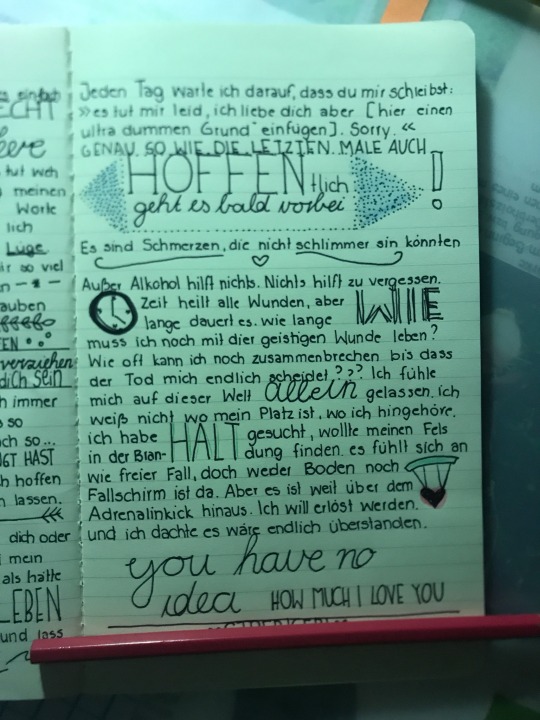 Jeden Tag warte ich darauf, dass du mir schreibst:
»es tut mir leid, ich liebe dich aber [hier einen
ultra dummen Grund einfügen]. Sorry. «
GENAU SO WIE DIE LETZTEN MALE AUCH
HOFFENtlich !
geht es bald vorbei
Es sind Schmerzen, die nicht schlimmer sin könnten
Außer Alkohol hilft nichts. Nichts hilft zu vergessen.
Zeit heilt alle Wunden, aber WIE
lange dauert es. wie lange
muss ich noch mit dier geistigen Wunde leben?
Wie oft kann ich noch zusammenbrechen bis dass
der Tod mich endlich scheidet??? Ich fühle
mich auf dieser Welt allein gelassen. ich
weiß nicht wo mein Platz ist, wo ich hingehöre.
ich habe HALT gesucht, wollte meinen Fels
in der Bran- dung finden. es fühlt sich an
wie freier Fall, doch weder Boden noch
Fallschirm ist da. Aber es ist weit über dem
Adrenalinkick hinaus. Ich will erlöst werden.
und ich dachte es wäre endlich überstanden.
you have no
idea HOW MUCH I LOVE YOU
tut weh
meinen
Worte
lich
Lüge
ir so viel
auben
verziehen
dich sein
h immer
so
ch so...
GT HAST
h hoffen
n lassen.
dich oder
mein
als hätte
LEBEN
und lass